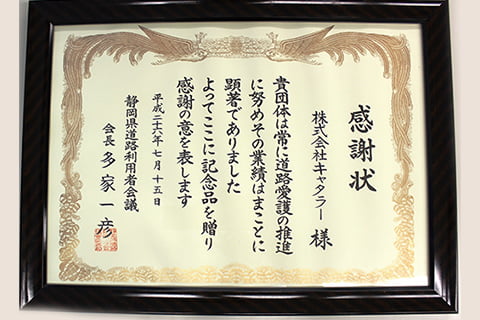 感謝状
株式会社キャタラー 様
貴団体は常に道路愛護の推進
に努めその業績はまことに
顕著でありました
よってここに記念品を贈り
感謝の意を表します
平成二十六年七月十五日
静岡県道路利用者会議
会長 多家一彦